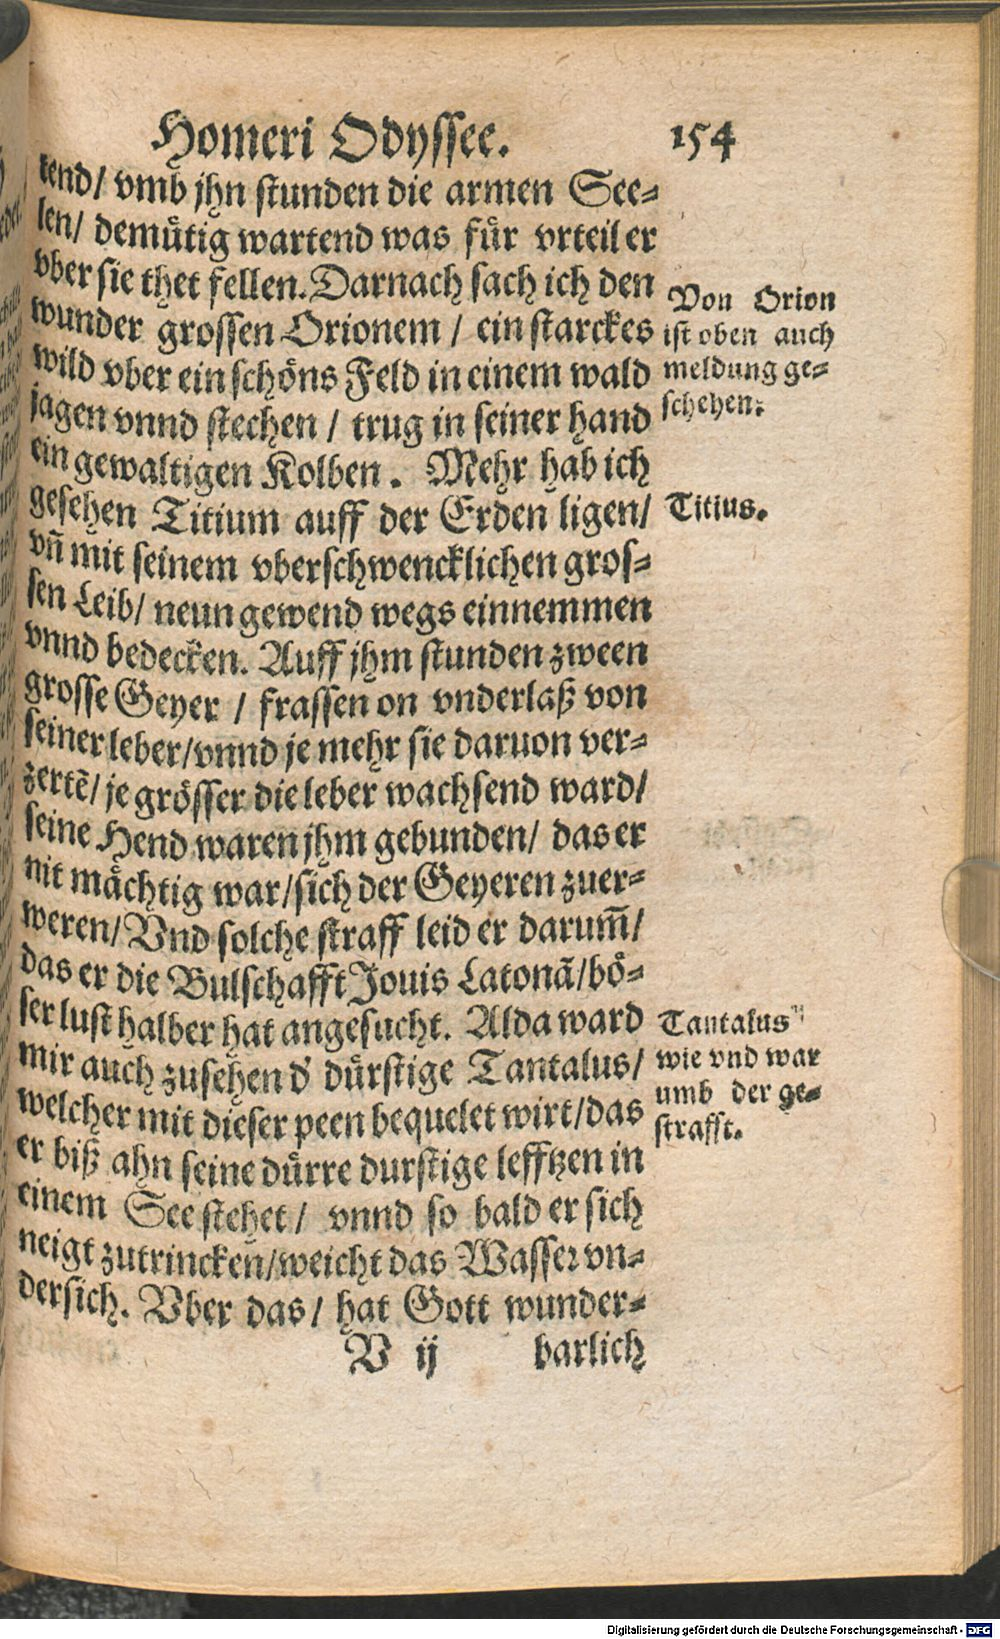 Homeri Odyssee. 154
kend/ vmb jhn stunden die armen See⸗
len/ demuͤtig wartend was fuͤr vrteil er
vber sie thet fellen. Darnach sach ich den
wunder grossen Orionem / ein starckes
wild vber ein schoͤns Feld in einem wald
jagen vnnd stechen / trug in seiner hand
ein gewaltigen Kolben. Mehr hab ich
gesehen Titium auff der Erden ligen/
vñ mit seinem vberschwencklichen gros⸗
sen Leib/ neun gewend wegs einnemmen
vnnd bedecken. Auff jhm stunden zween
grosse Geyer / frassen on vnderlaß von
seiner leber/vnnd je mehr sie daruon ver⸗
zertẽ/ je groͤsser die leber wachsend ward/
seine Hend waren jhm gebunden/ das er
nit maͤchtig war/sich der Geyeren zuer⸗
weren/ Vnd solche straff leid er darum̃/
das er die Bulschafft Jouis Latonã/boͤ⸗
ser lust halber hat angesucht. Alda ward
mir auch zusehen d' duͤrstige Tantalus/
welcher mit dieser peen bequelet wirt/das
er biß ahn seine duͤrre durstige lefftzen in
einem See stehet/ vnnd so bald er sich
neigt zutrincken/weicht das Wasser vn⸗
dersich. Vber das/ hat Gott wunder⸗
V ij barlich
Von Orion
ist oben auch
meldung ge⸗
schehen.
Titius.
Tantalus
wie vnd war
umb der ge⸗
strafft.
Digitalisierung gefördert durch die Deutsche Forschungsgemeinschaft - DFG